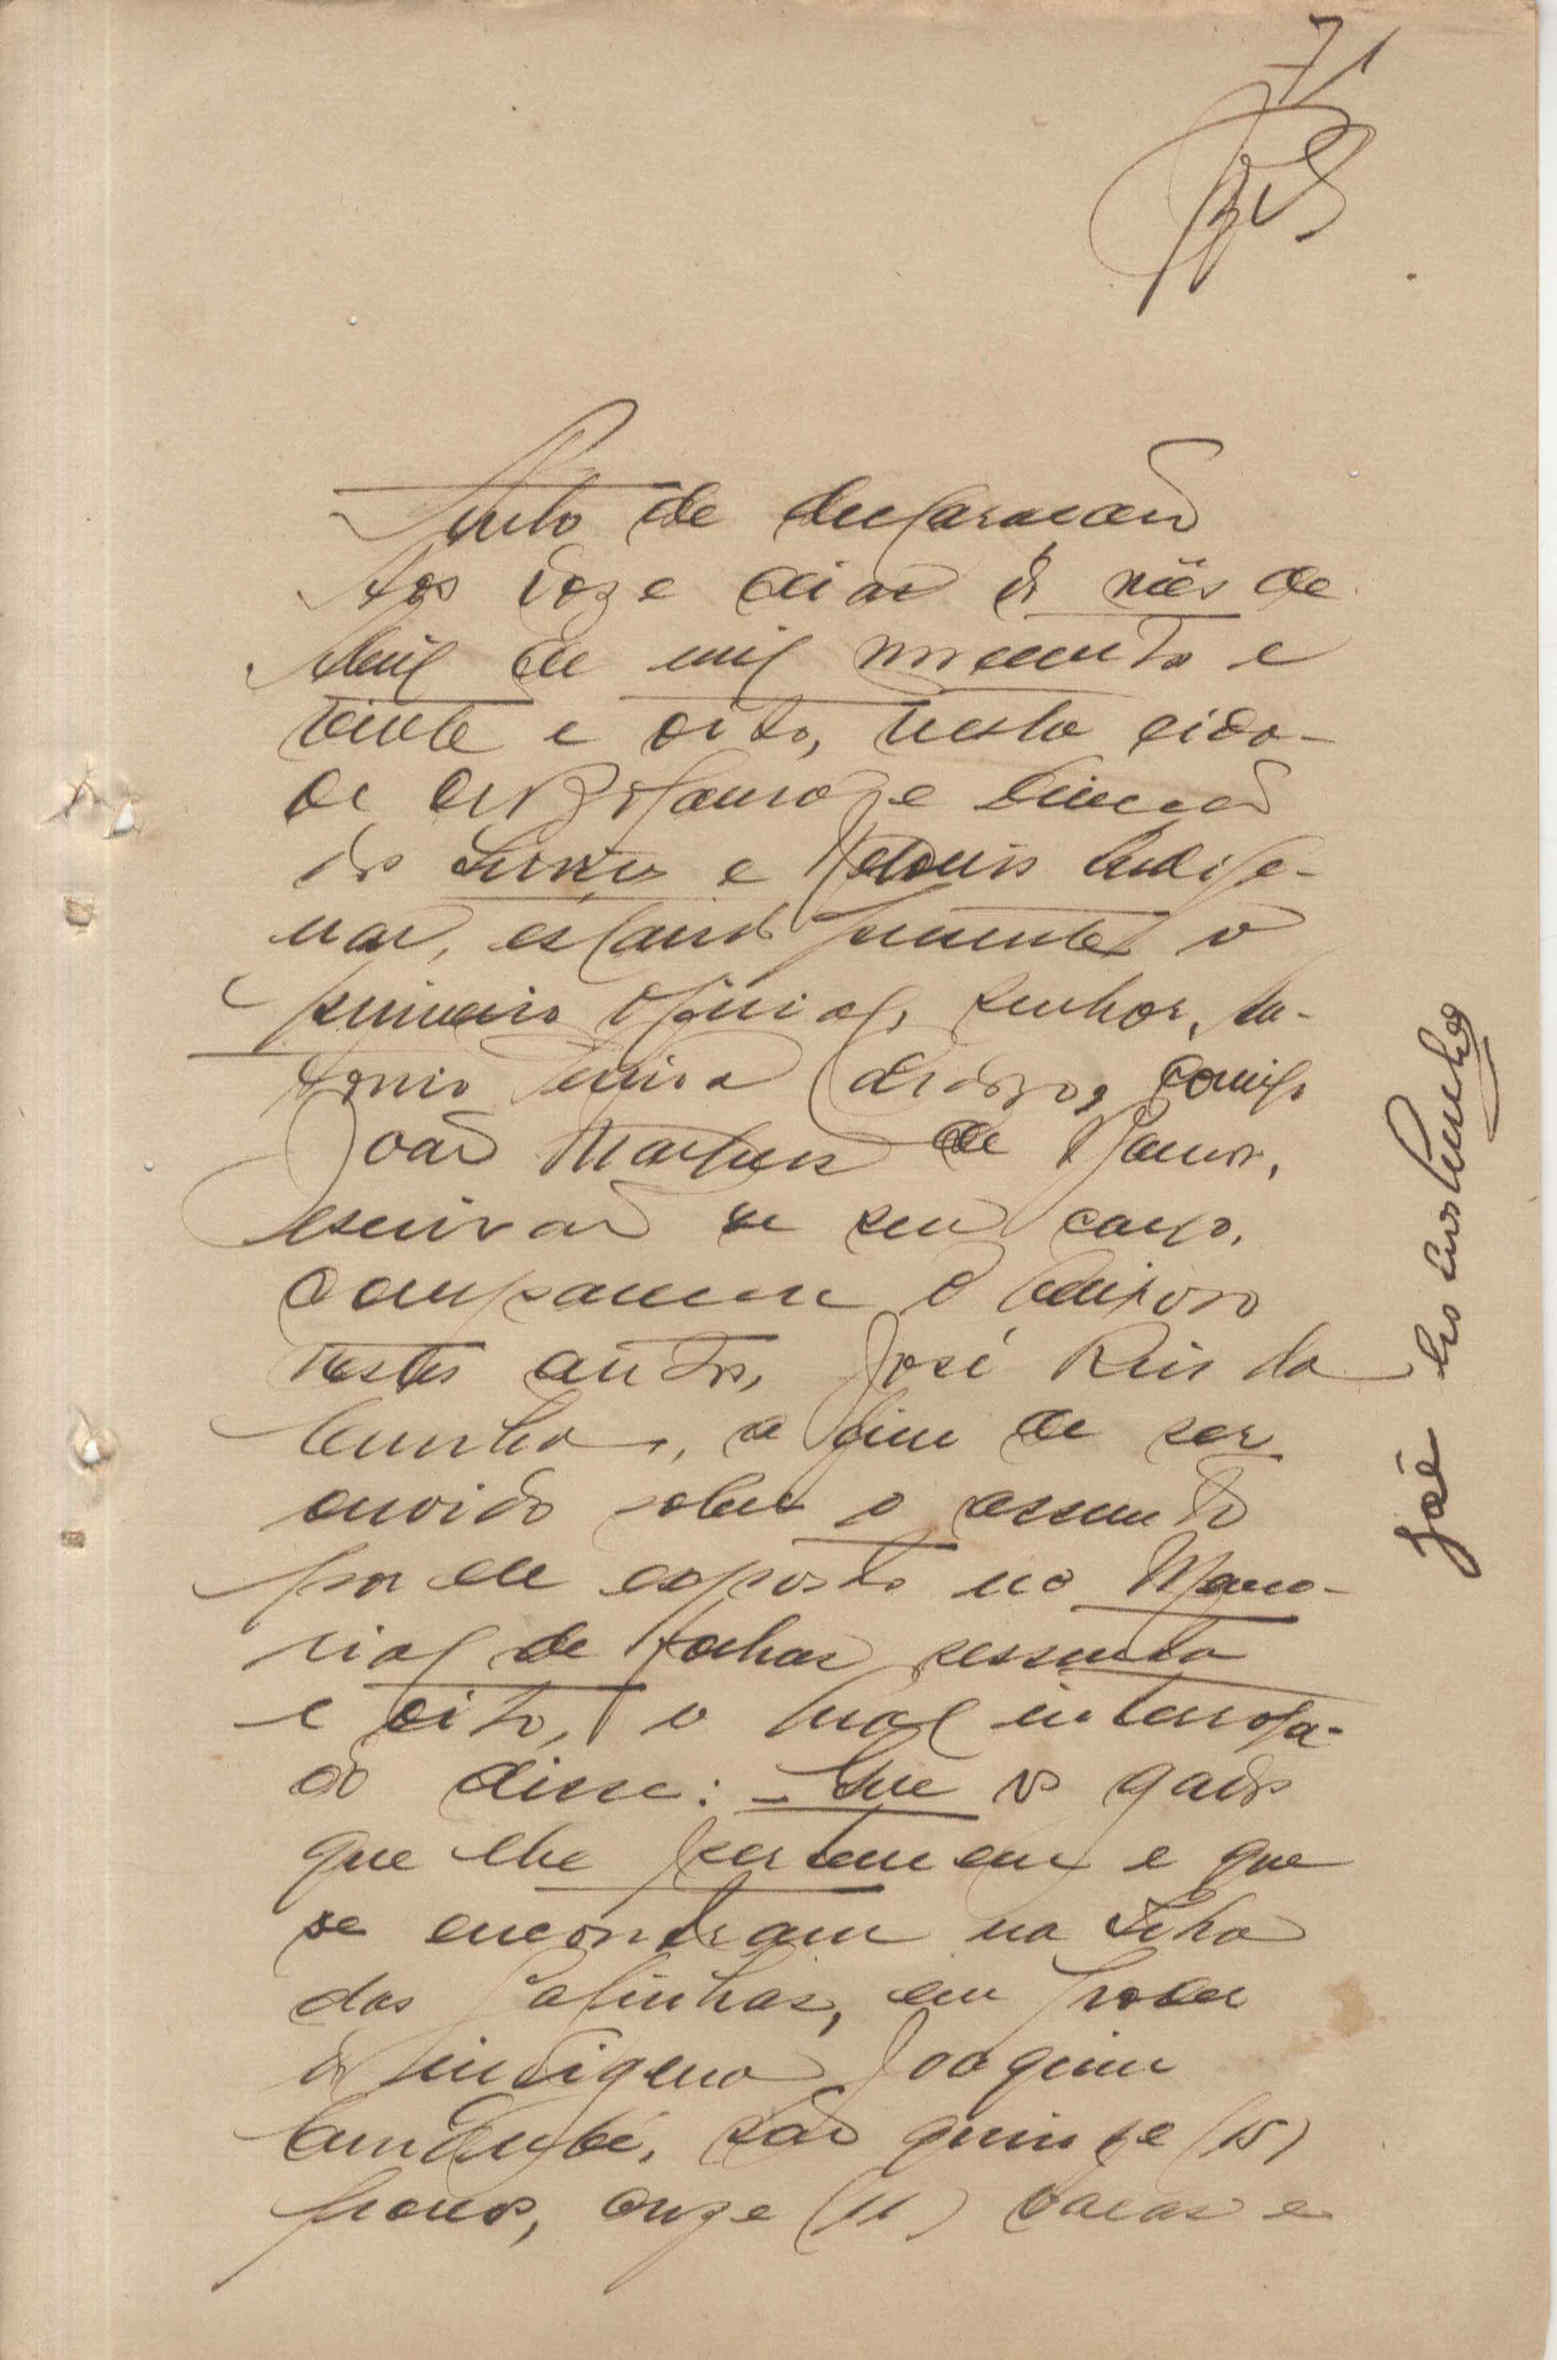 71
Auto de declaração
Aos doze dias do mês de
Abril de mil novecentos e
vinte e oito, nesta cida-
de de Bolama e Direcção
dos Serviços e Negocios Indige-
nas, estando presente o
primeiro oficial, senhor, An-
tonio Pereira Cardoso, comigo
João Martins de Ramos,
escrivão de seu cargo,
compareceu o queixoso
nestes autos, José Reis da
Cunha, a fim de ser
ouvido sobre o assunto
por ele exposto no Memo-
rial de folhas sessenta
e oito, o qual interroga-
do disse: - Que os gados
que lhe pertencem e que
se encontram na Ilha
das Galinhas, em poder
do indigena Joaquim
são quinze (15)
porcos, onze (11) vacas e
José Reis da Cunha